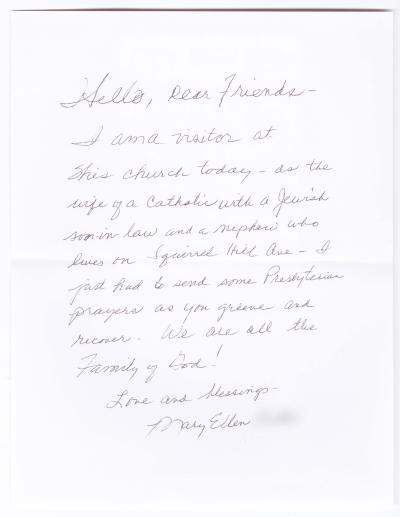 Hello, Dear Friends-
I am a visitor at
this church today - as the
wife of a Catholic with a Jewish
son-in-law and a nephew who
lives on Squirrel Hill Ave - I
just had to send some Presbyterian
prayers as you grieve and
recover. We are all the
Family of God!
Love and blessings-
Mary Ellen